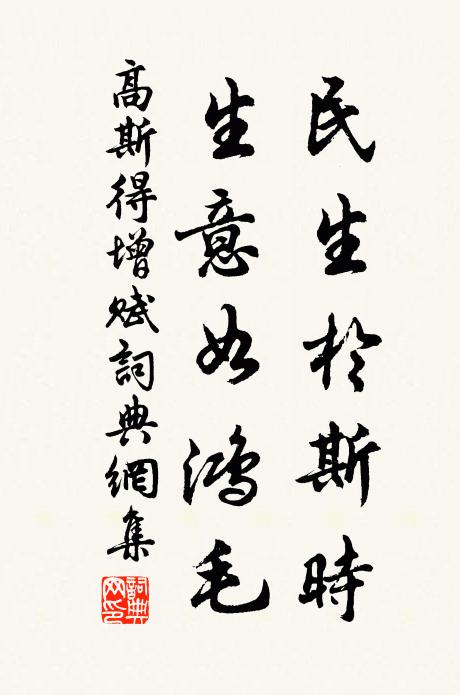 民生於斯時
生意如鴻毛
高斯得增賦詞典網集
詞典
网印